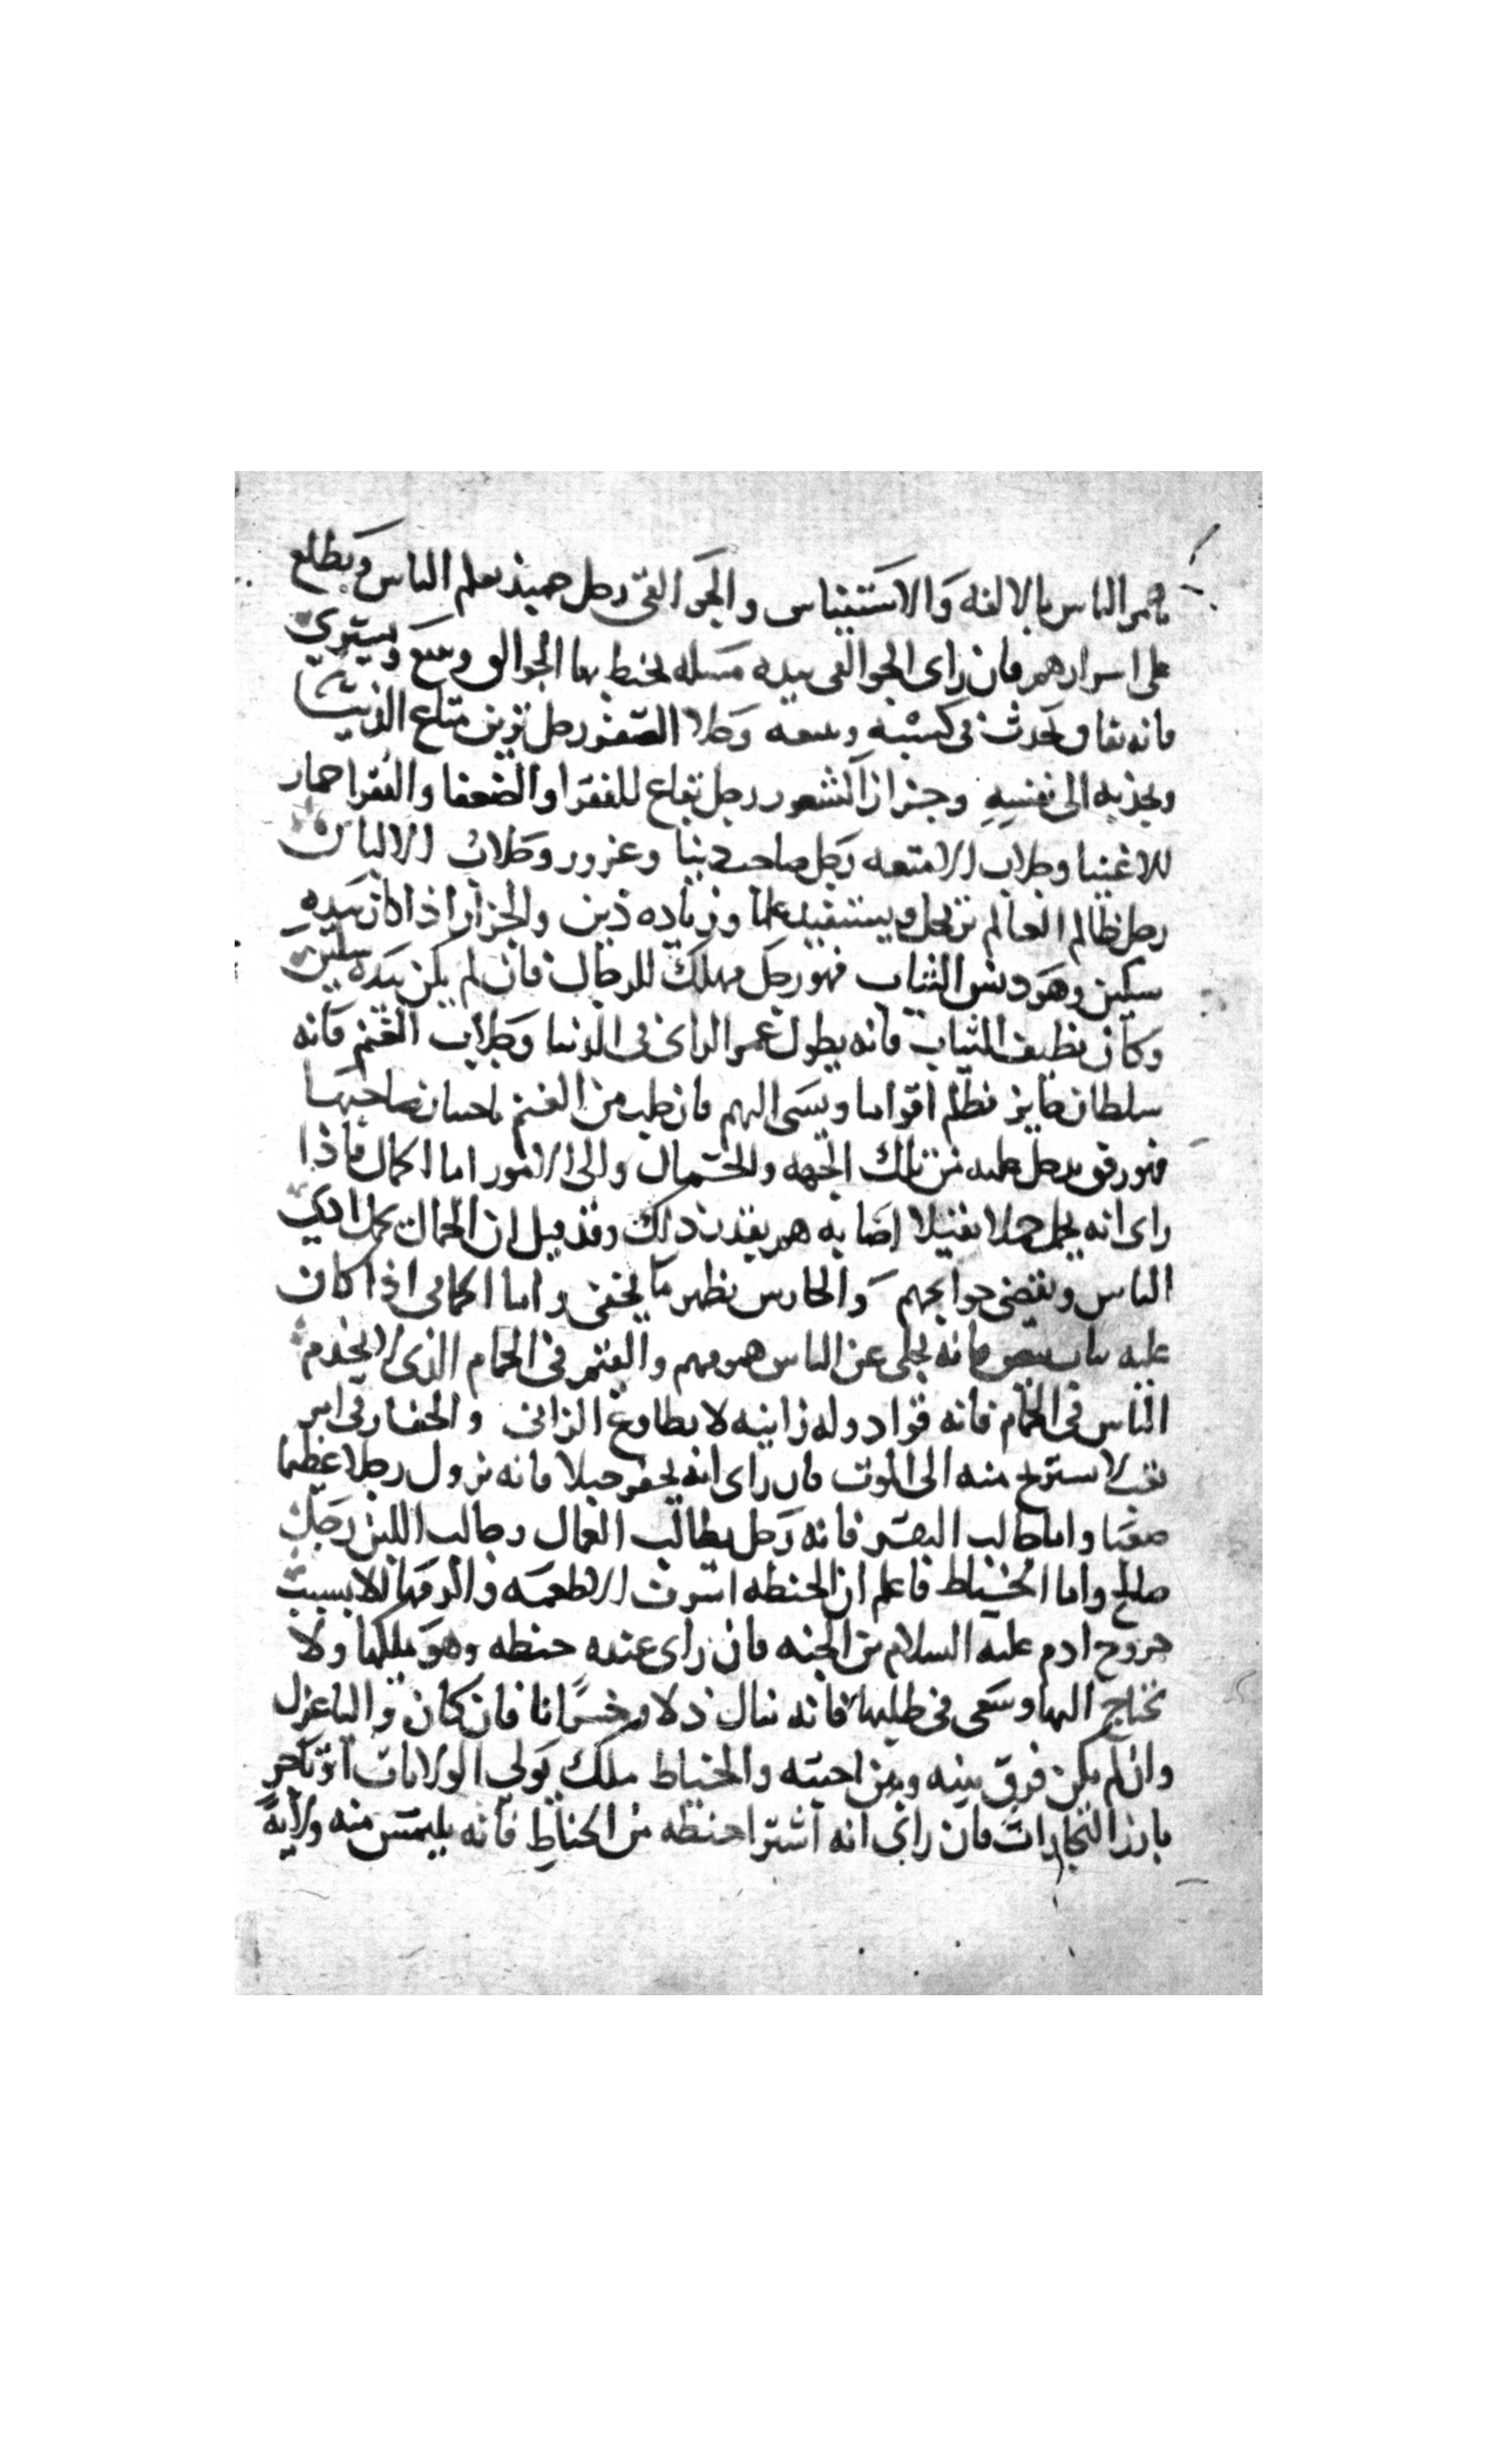 يامر الناس بالالفه والاستيناس والجوالقى رجل حميد يعلم الناس ويطلع
على اسرارهم فان راى الجوالقى بيده مسله يخيط بها الجوالق وسع ويشتري
فانه يحدث فى كسبه وسعه وطلا الصفر رجل يزين متاع الدنيا
ويجذبه الى نفسه وجزاز الشعور رجل نفاع للفقرا والضعفا والفقرا حمار
للاغنيا وجلاب الامتعه رجل صاحب دنيا وغرور وجلاب الالبان
رجل ظالم العالم رجل ويستفيد علما وزياده دين والجزار اذا كان بيده
سكين وهو دنس الثياب فهو رجل مهلك للرجال فان لم يكن بيده سكين
وكان نظيف الثياب فانه يطول عمر الراى فى الدنيا وجلاب الغنم فانه
سلطان جاير يظلم اقواما ويسى اليهم فان طلب من الغنم باحسان صاحبها
فهو رفق يدخل عليه من تلك الجهه والحمال والى الامور اما الحمال فاذا
راى انه يحمل حملا ثقيلا اصابه هم بقدر ذلك وقد قيل ان الحمال يحمل اذى
الناس ويقضى حوايجهم والحارس يظهر ما يخفى واما الحمامى اذا كان
عليه ثياب بيض فانه يجلى عن الناس همومهم والقيم فى الحمام الذى لا يخدم
الناس فى الحمام فانه قواد وله زانيه لا يطاوع الزانى والحفار فى امر
تعب لا يستريح منه الى الموت فان راى انه يحفر جبلا فانه يزول رجلا عظيما
صعبا واما حالب البقر فانه رجل يطالب العمال وحالب اللبن رجل
صالح واما الخياط فاعلم ان الحنطه اشرف الاطعمه والزمها للا بسبب
خروج ادم عليه السلام من الجنه فان راى عنده حنطه وهو يملكها ولا
يحتاج اليها وسعى فى طلبها فانه ينال ذلا وخسرانا فان كان واليا عزل
وان لم يكن فرق بينه وبين احبته والخياط ملك يولى الولايات او تاجر
بارز التجارات فان راى انه اشترا حنطه من الحناط فانه يلتمس منه ولاية